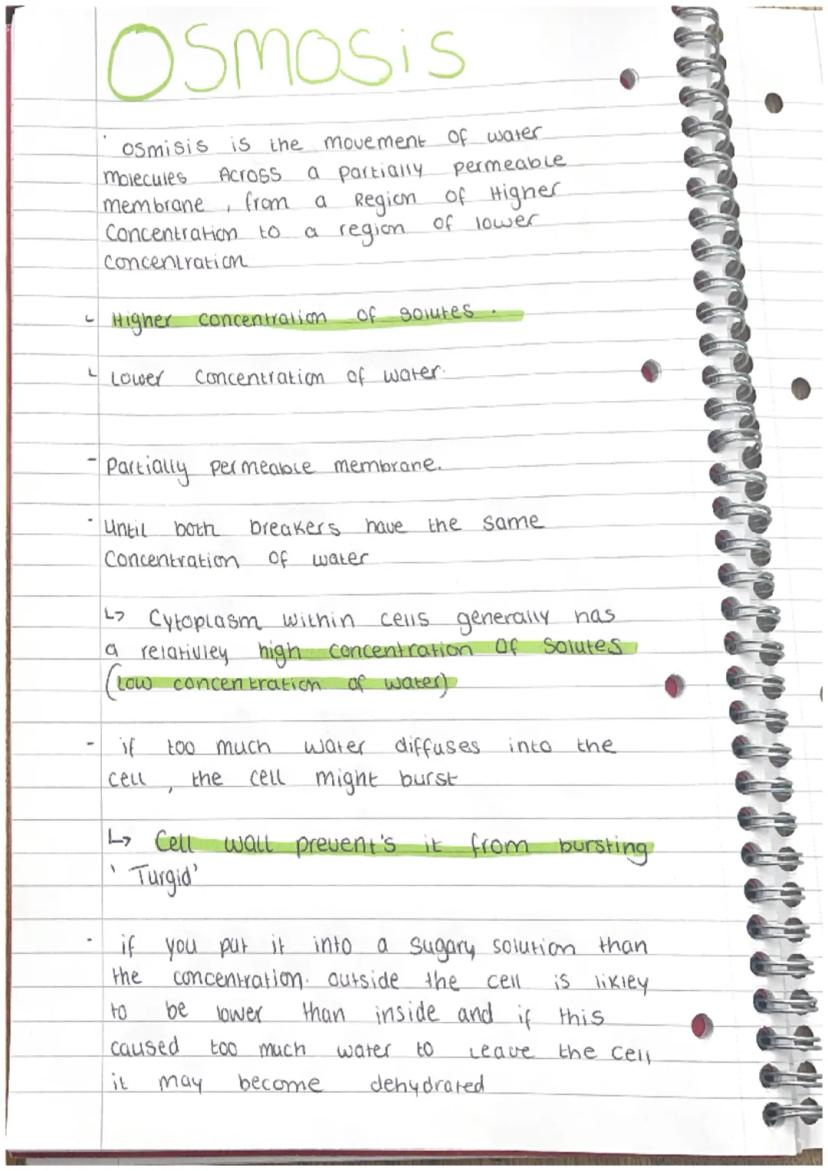 OSMOSiS
· osmisis is the movement of water
molecules Across a partially permeable
membrane, from a Region of Higher
Concentration to a region of lower
concentration
Higher concentration of solutes.
Lower concentration of water.
- Partially permeable membrane.
· Until both breakers have the same
Concentration of water
↳ Cytoplasm within cells generally has
a relativley high concentration of solutes
(Low concentration of water)
- if too much water diffuses into the
cell, the cell might burst
↳ Cell wall prevent's it from bursting
'Turgid'
- if you put it into a sugary solution than
the concentration. outside the cell is likley
to be lower than inside and if this
caused too much water to leave the cell
it may become dehydrated